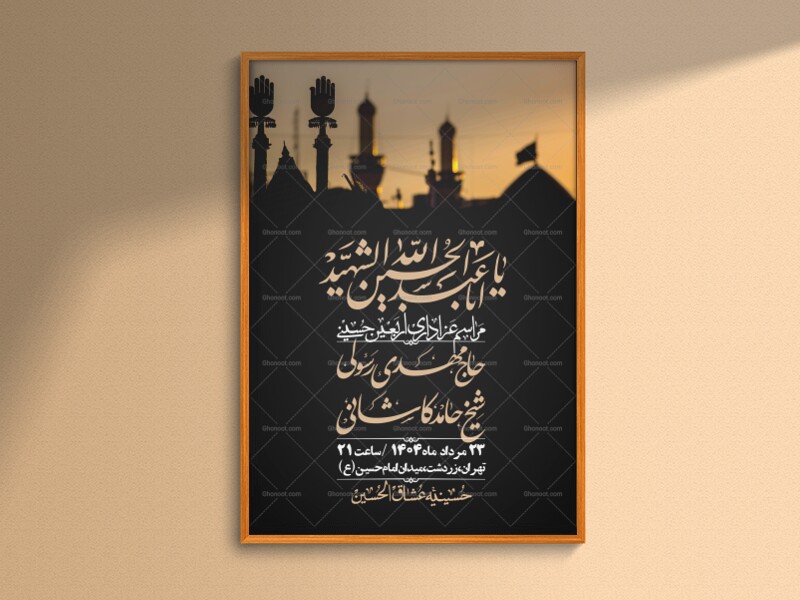 یا اباعبدالله الحسین الشهید
مراسم عزاداری اربعین حسینی
حاج مهدی رسولی
شیخ حامد کاشانی
۲۳ مرداد ماه ۱۴۰۴ / ساعت ۲۱
تهران، زردشت، میدان امام حسین (ع)
حسینیه عشاق الحسین
Ghonoot.com